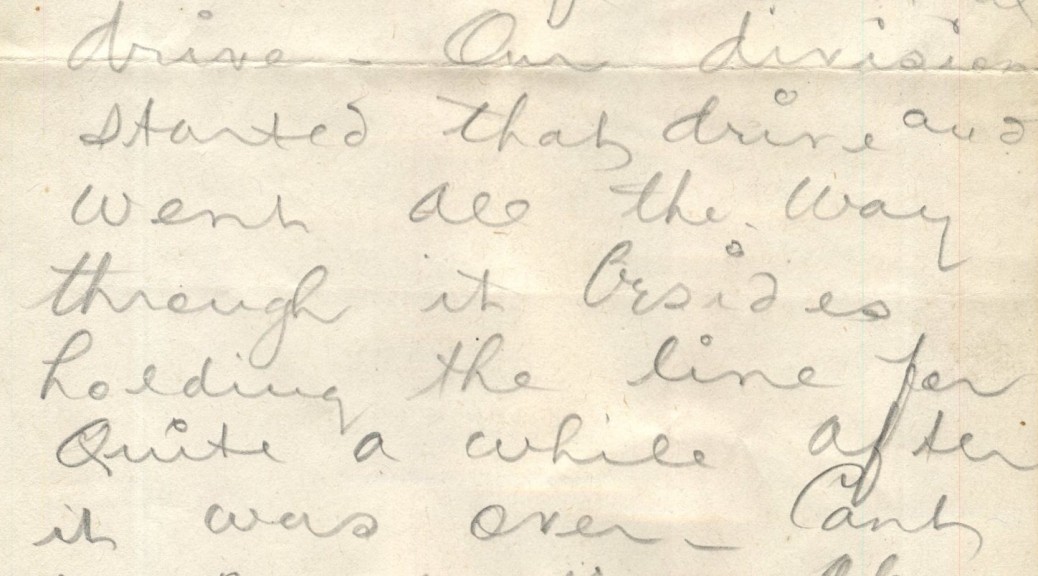 drive - Our division
started that drive and
went all the way
through it besides
holding the line for
Quite a while after
it was over - Cant